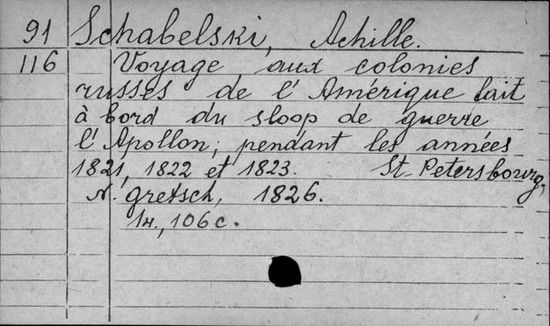 91 Schabelski, Achille.
116 Voyage aux colonies
russes de l'Amérique fait
à bord du sloop de guerre
l'Apollon, pendant les années
1821, 1822 et 1823. St. Petersbourg,
N. gretsch, 1826.
1н., 106 с.